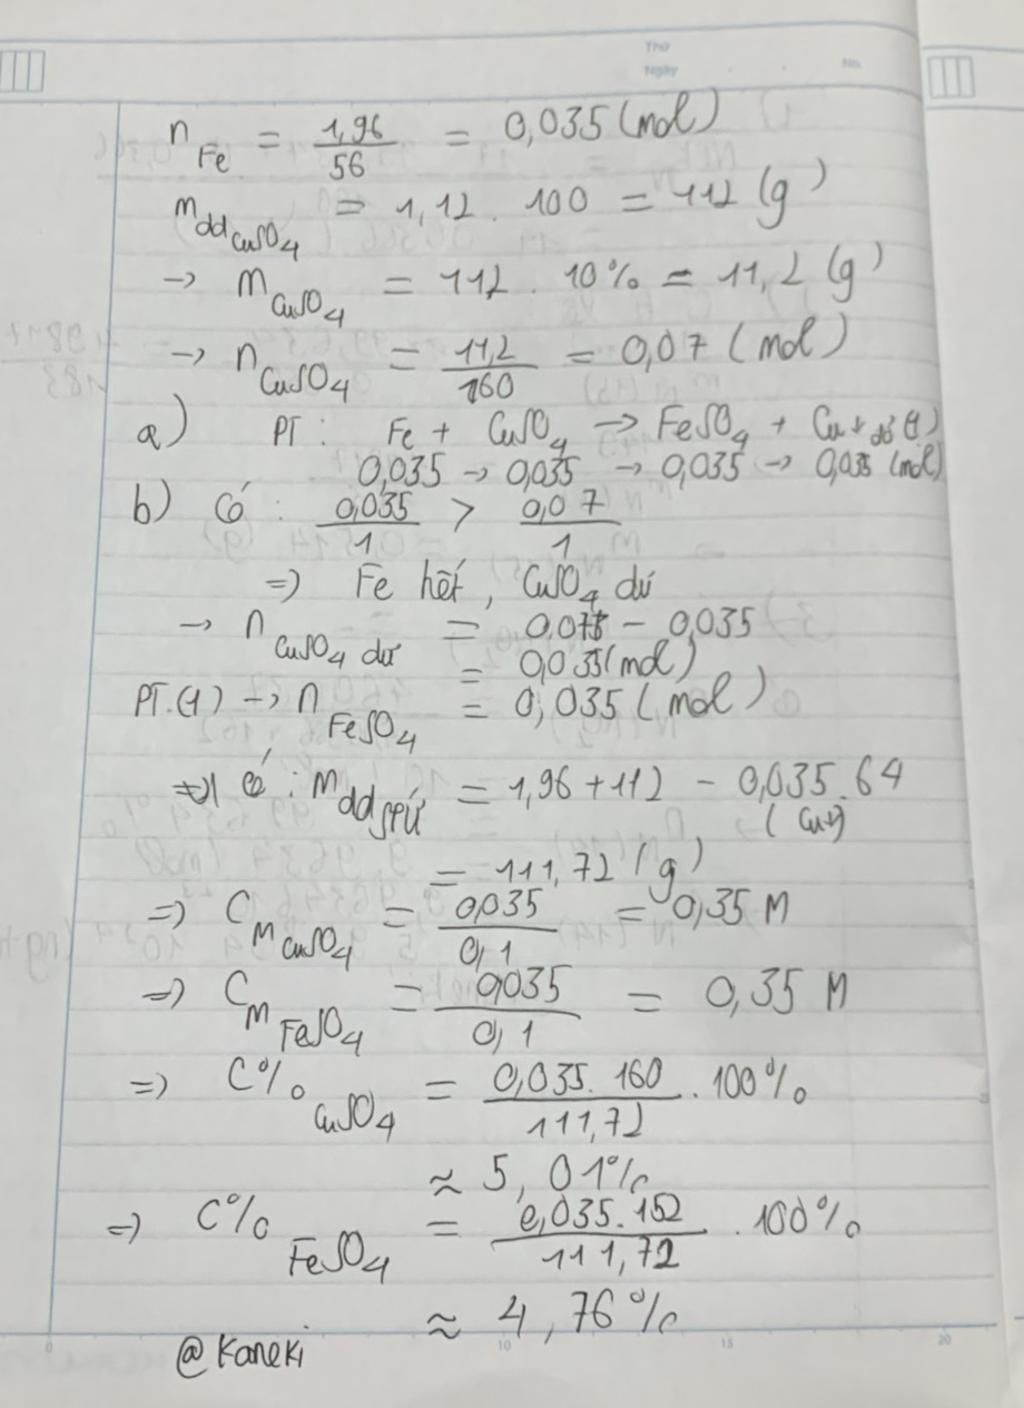 Thứ
Ngày No.
n Fe = 1,96/56 = 0,035 (mol)
m dd CuSO4 = 1,12 . 100 = 112 (g)
→ m CuSO4 = 112 . 10% = 11,2 (g)
→ n CuSO4 = 11,2/160 = 0,07 (mol)
a) PT : Fe + CuSO4 → FeSO4 + Cu↓ đỏ (1)
0,035 → 0,035 → 0,035 → 0,035 (mol)
b) Có : 0,035/1 > 0,07/1
=> Fe hết, CuSO4 dư
→ n CuSO4 dư = 0,07 - 0,035
= 0,035 (mol)
PT.(1) → n FeSO4 = 0,035 (mol)
=> Có : m dd spứ = 1,96 + 112 - 0,035.64
(Cu↓)
= 111,72 (g)
=> C M CuSO4 = 0,035/0,1 = 0,35 M
=> C M FeSO4 = 0,035/0,1 = 0,35 M
=> C% CuSO4 = 0,035.160/111,72 . 100%
≈ 5,01%
=> C% FeSO4 = 0,035.152/111,72 . 100%
≈ 4,76%
@Kaneki
0 10 15 20